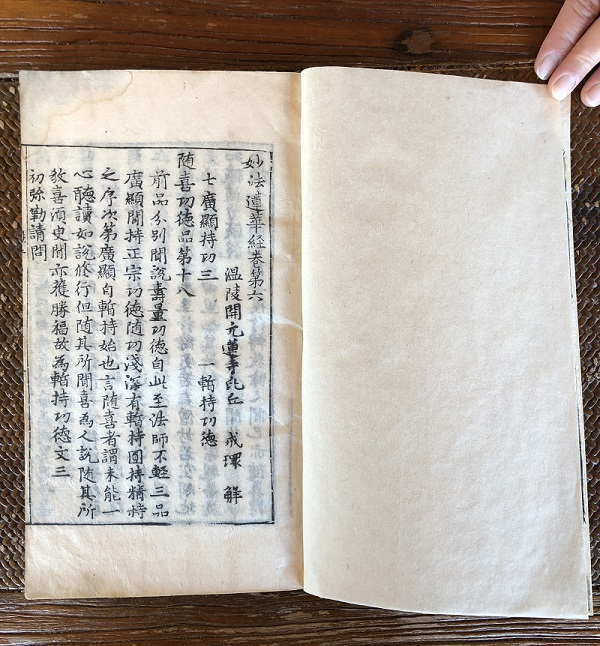 妙法蓮華経巻第六
温陵開元蓮寺比丘 戒環 解
七廣顯持功三 一暫持功徳
随喜功徳品第十八
前品分別聞說壽量功徳自此至法師不輕三品
廣顯聞持正宗功徳随功淺深有暫持圓持精持
之序次第廣顯自暫持始也言随喜者謂未能一
心聽讀如說修行但随其所聞喜為人說随其所
敎喜須臾聞亦獲勝福故為暫持功徳文三
初弥勒請問